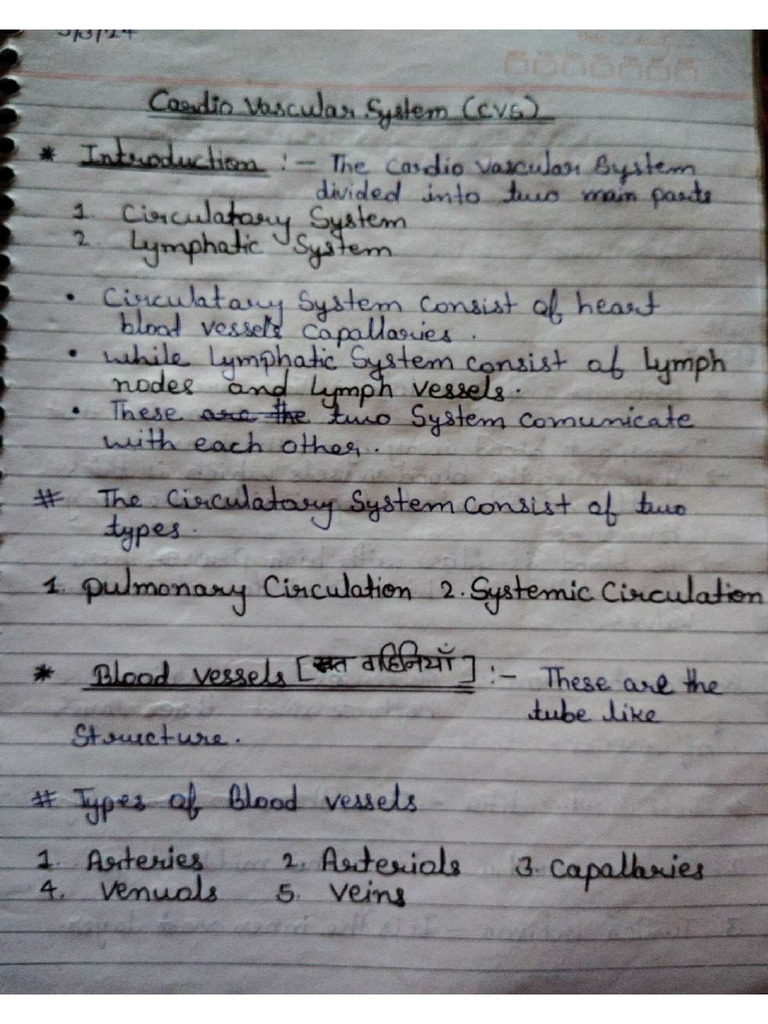 5/3/24
Cardio Vascular System (CVS)
* Introduction :- The Cardio Vascular System
divided into two main parts
1. Circulatary System
2. Lymphatic System
• Circulatary System Consist of heart
blood vessels Capallaries.
• while lymphatic System consist of lymph
nodes and lymph vessels.
• These are the two System comunicate
with each other.
# The Circulatary System Consist of two
types.
1. Pulmonary Circulation 2. Systemic Circulation
* Blood vessels [रक्त वाहिनियाँ] :- These are the
tube like
Structure.
# Types of Blood vessels
1. Arteries 2. Arterials 3. Capallaries
4. Venuals 5. Veins